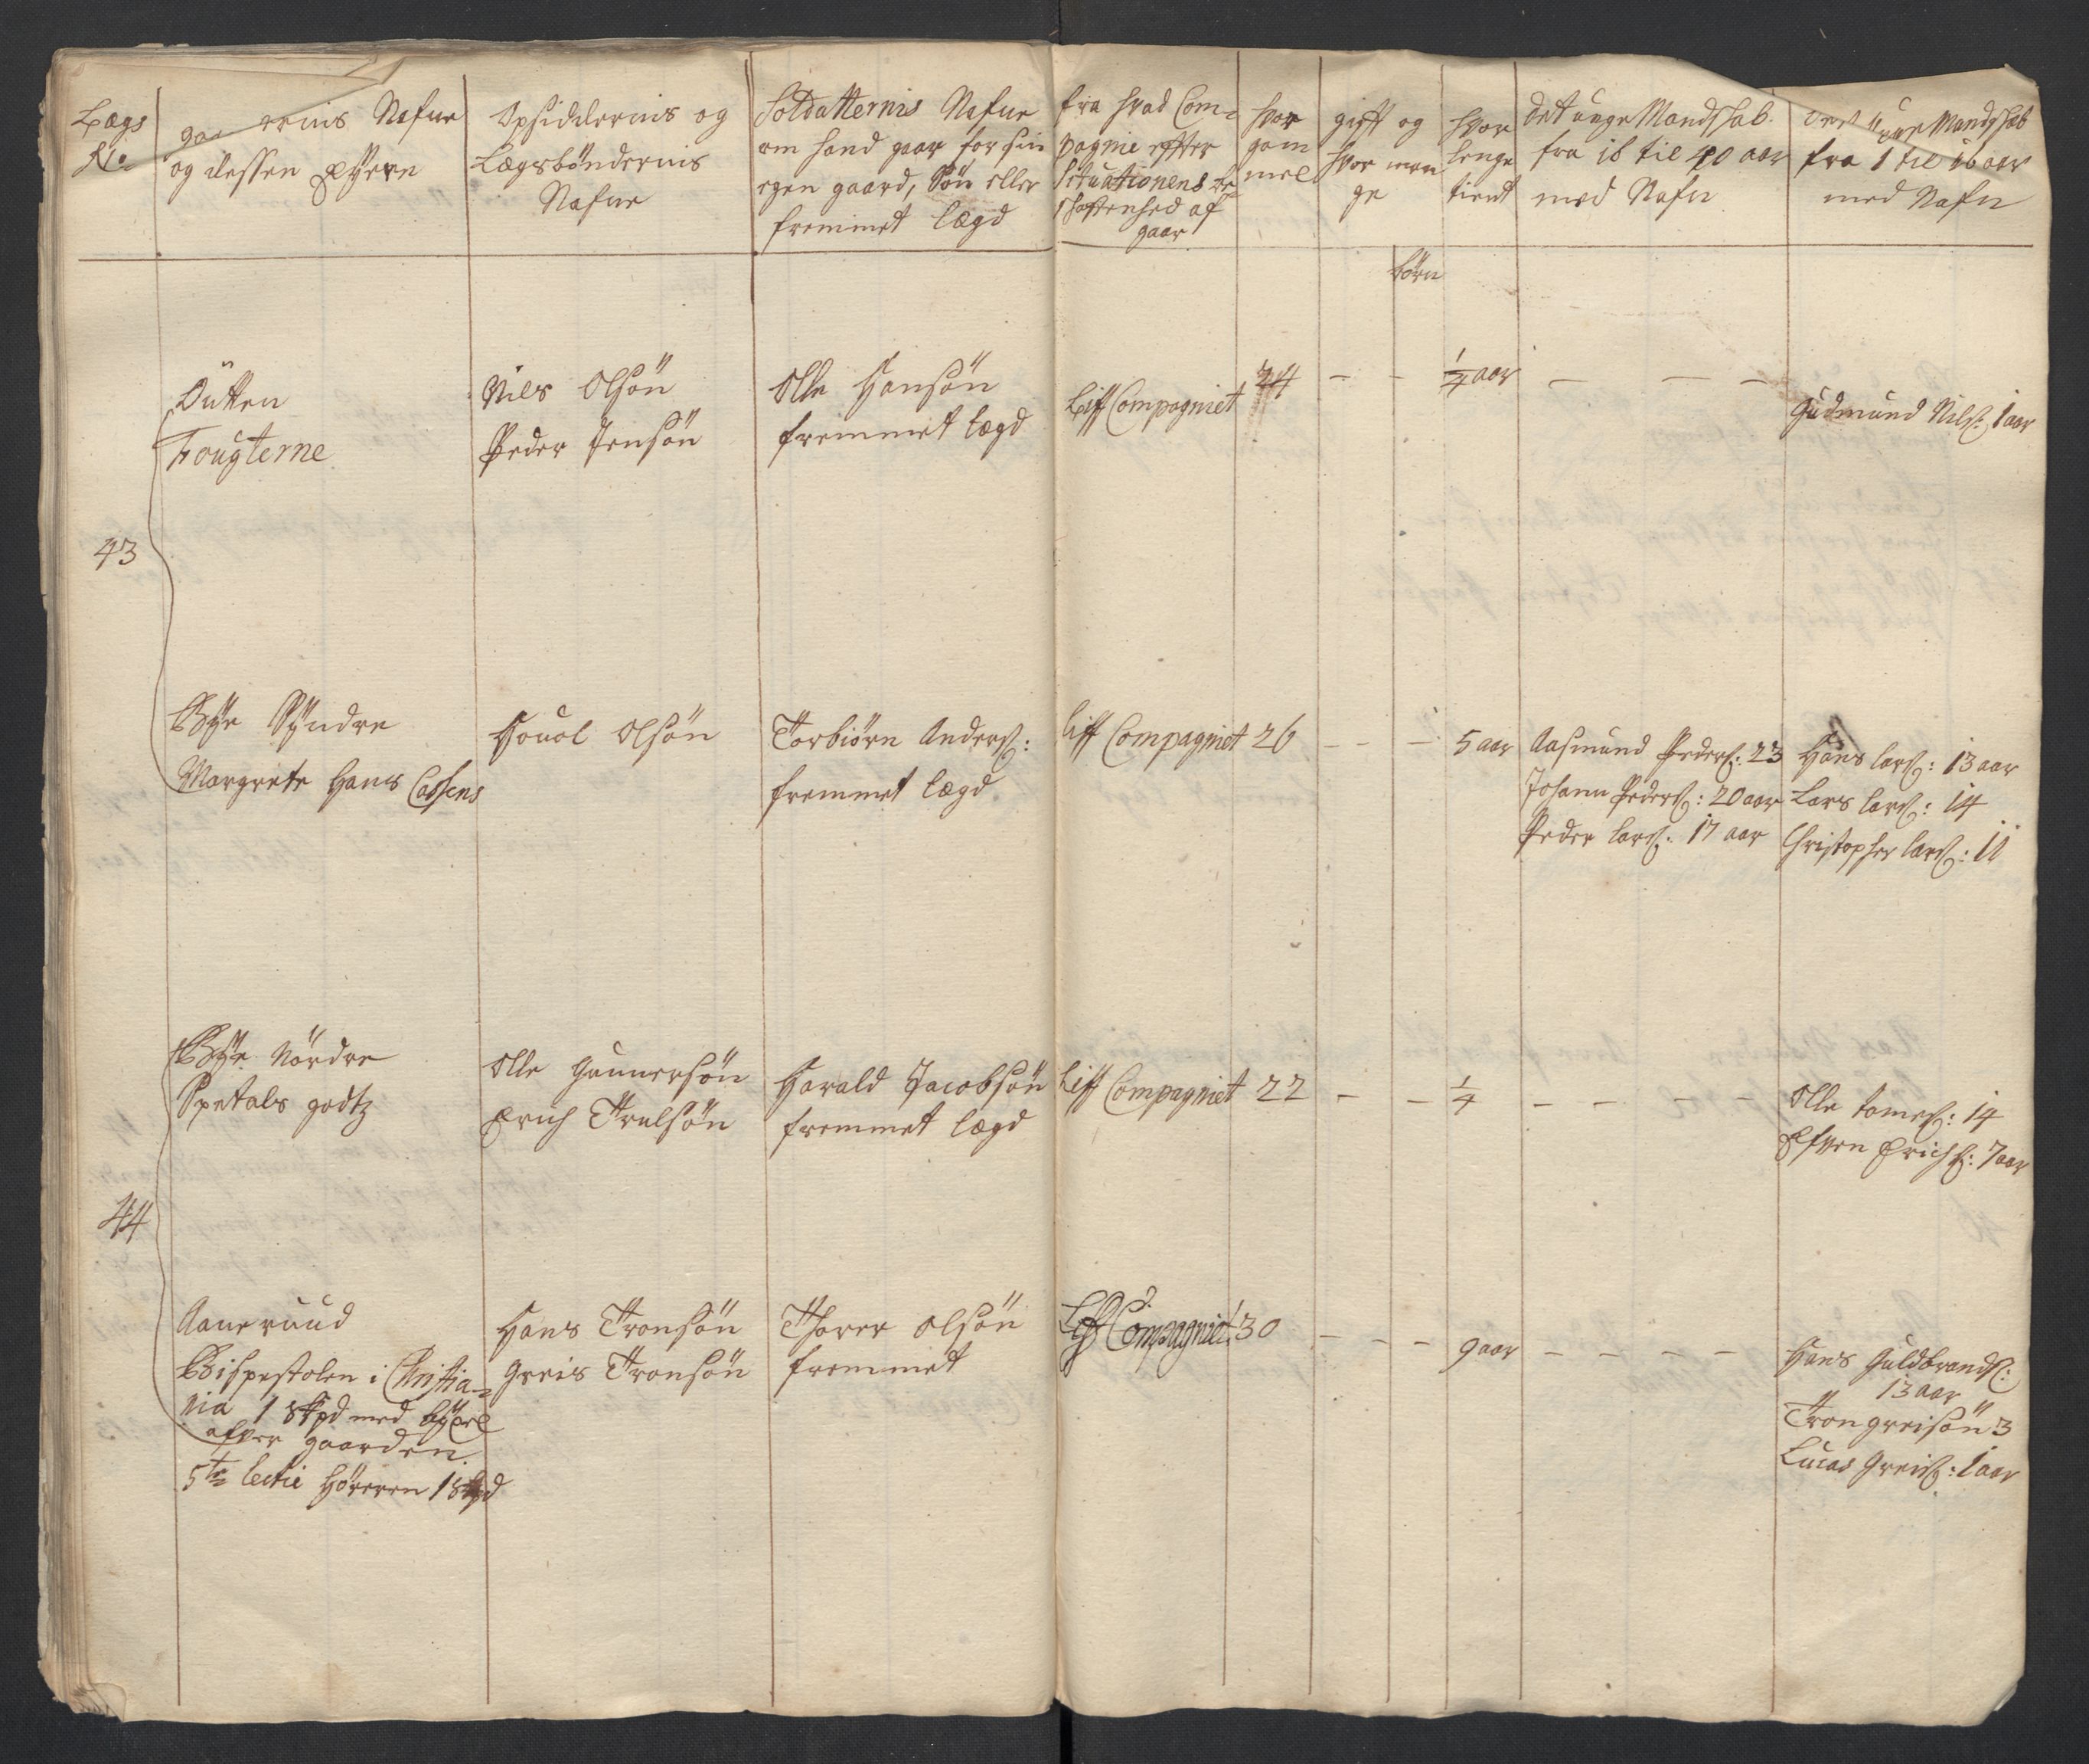 Lægs
No
ernis Nafne
og dessen Eyere
Opsiddernis og
Lægsbøndernis
Nafne
Soldatternis Nafne
om hand gaar for sin
egen gaard, Søn eller
fremmet lægd
fra hvad Com-
pagnie effter
Situationens be-
skaffenhed af
gaar
hvor
gam
mel
gifft og
hvor man
ge
hvor
lenge
tient
det unge Mandskab
fra 16 til 40 aar
med Nafn
unge Mandskab
fra 1 til 16 aar
med Nafn
børn
43
Dutten
Fougterne
Niels Olsøn
Peder Jensøn
Olle Hansøn
fremmet lægd
Liff Compagniet
24
– –
1/4 aar
– – –
Gudmund Nils: 1 aar
Bÿe Syndre
Margrete Hans Cassens
Houol Olsøn
Torbiørn Anders:
fremmet lægd
Liff Compagniet
26
– – –
5 aar
Aasmund Peders: 23
Johann Peders: 20 aar
Peder lars: 17 aar
Hans lars: 13 aar
Lars lars: 14
Christopher lars: 11
44
Bÿe Nørdre
Spetals godtz
Olle Gunnersøn
Erich Trulsøn
Harald Jacobsøn
fremmet lægd
Liff Compagniet
22
– –
1/4
– – – –
Olle tomes: 14
Efven Erichs: 7 aar
Aaneruud
Bispestolen i Christia-
nia 1 Skpd med bÿxel
ofver gaarden
5te lectie Høreren 1 Skpd
Hans Tronsøn
Greis Tronsøn
Thorer Olsøn
fremmet
Liff Compagniet
30
– – –
9 aar
– – – –
Hans Guldbrands:
13 aar
Tron greisøn 3
Lucas Greis: 1 aar